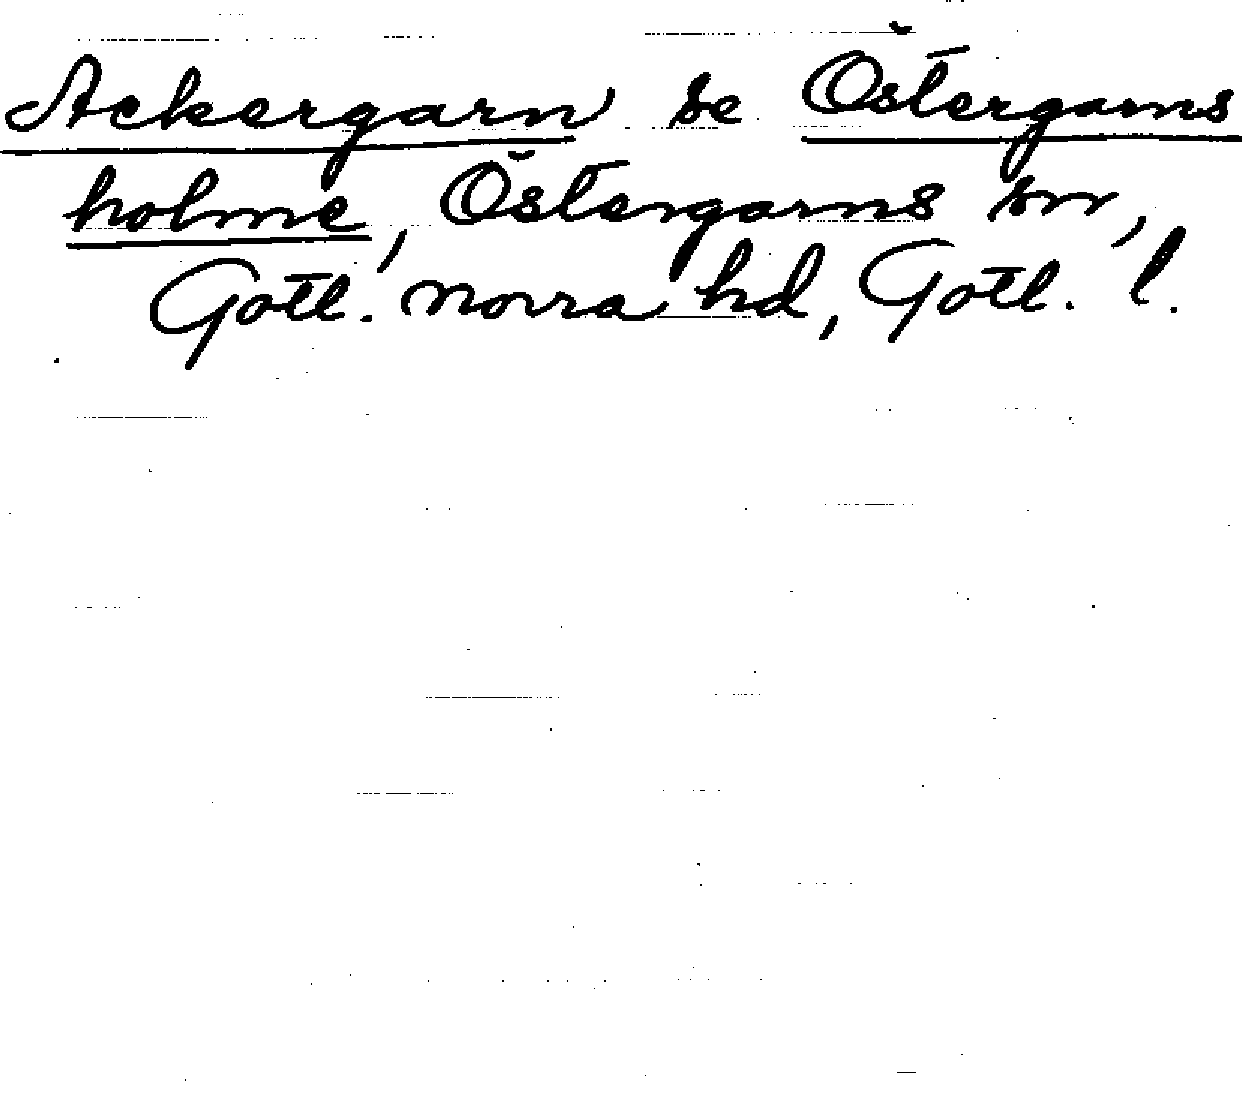 Ackergarn se Östergarns
holme, Östergarns sn,
Gotl. norra hd, Gotl. l.